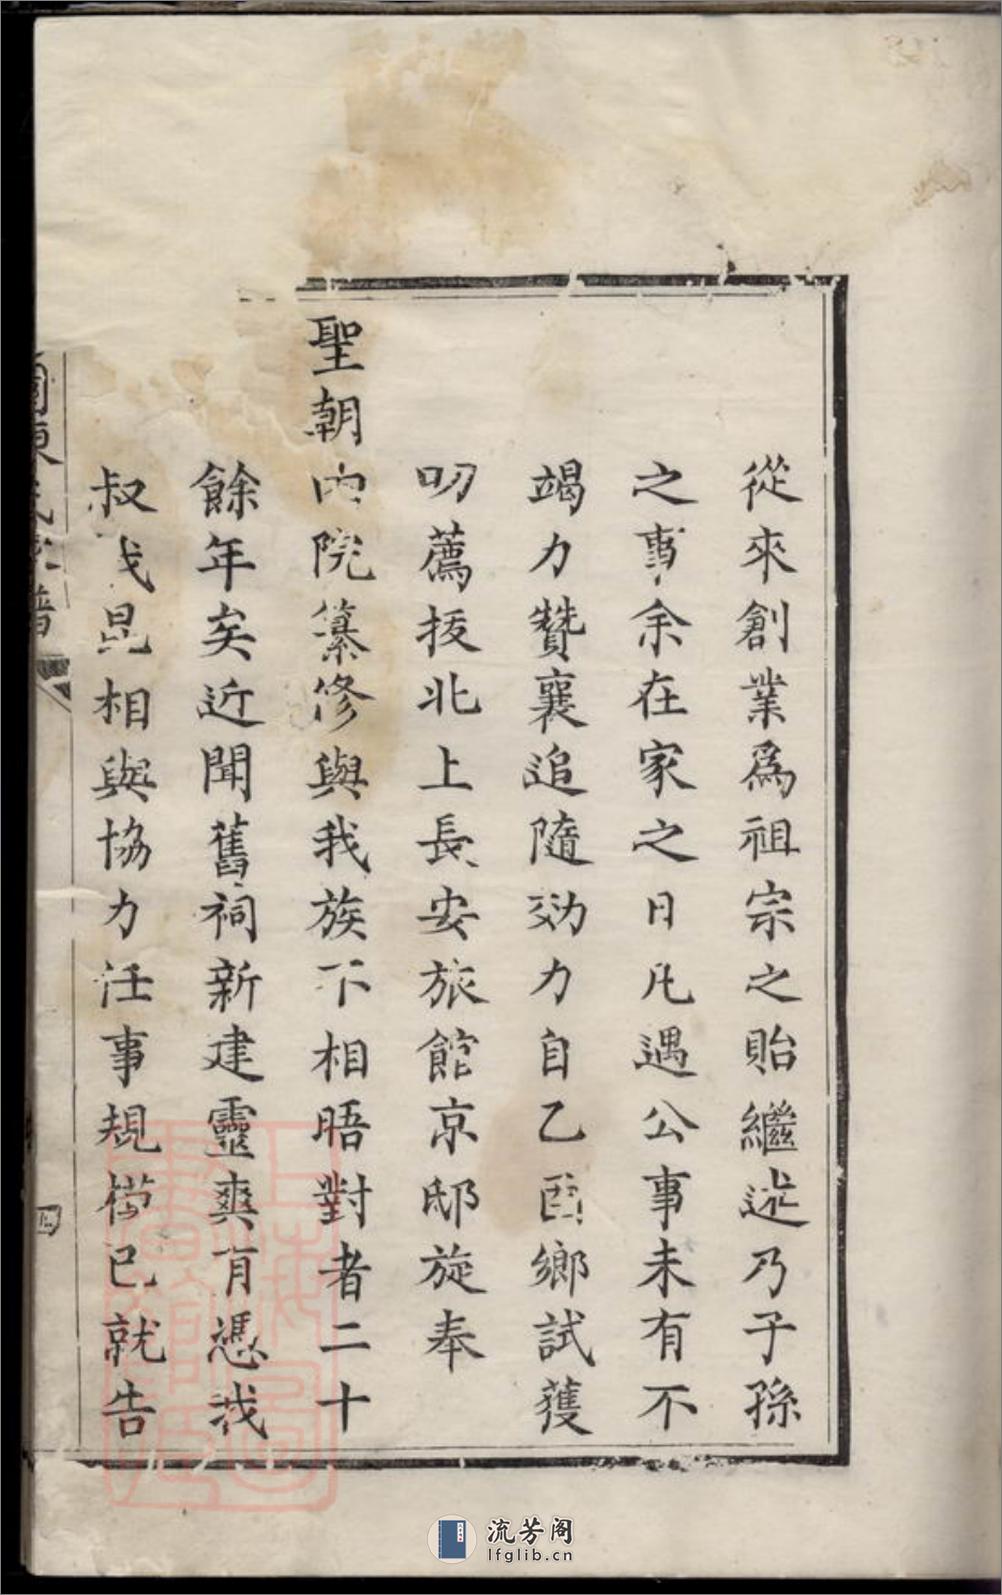 從來創業爲祖宗之貽繼述乃子孫
之事余在家之日凡遇公事未有不
竭力贊襄追隨効力自乙酉鄉試獲
叨薦拔北上長安旅館京邸旋奉
聖朝內院纂修與我族下相晤對者二十
餘年矣近聞舊祠新建靈爽有憑我
叔我昆相與協力任事規模已就告
氏家譜
流芳阁
lfglib.cn